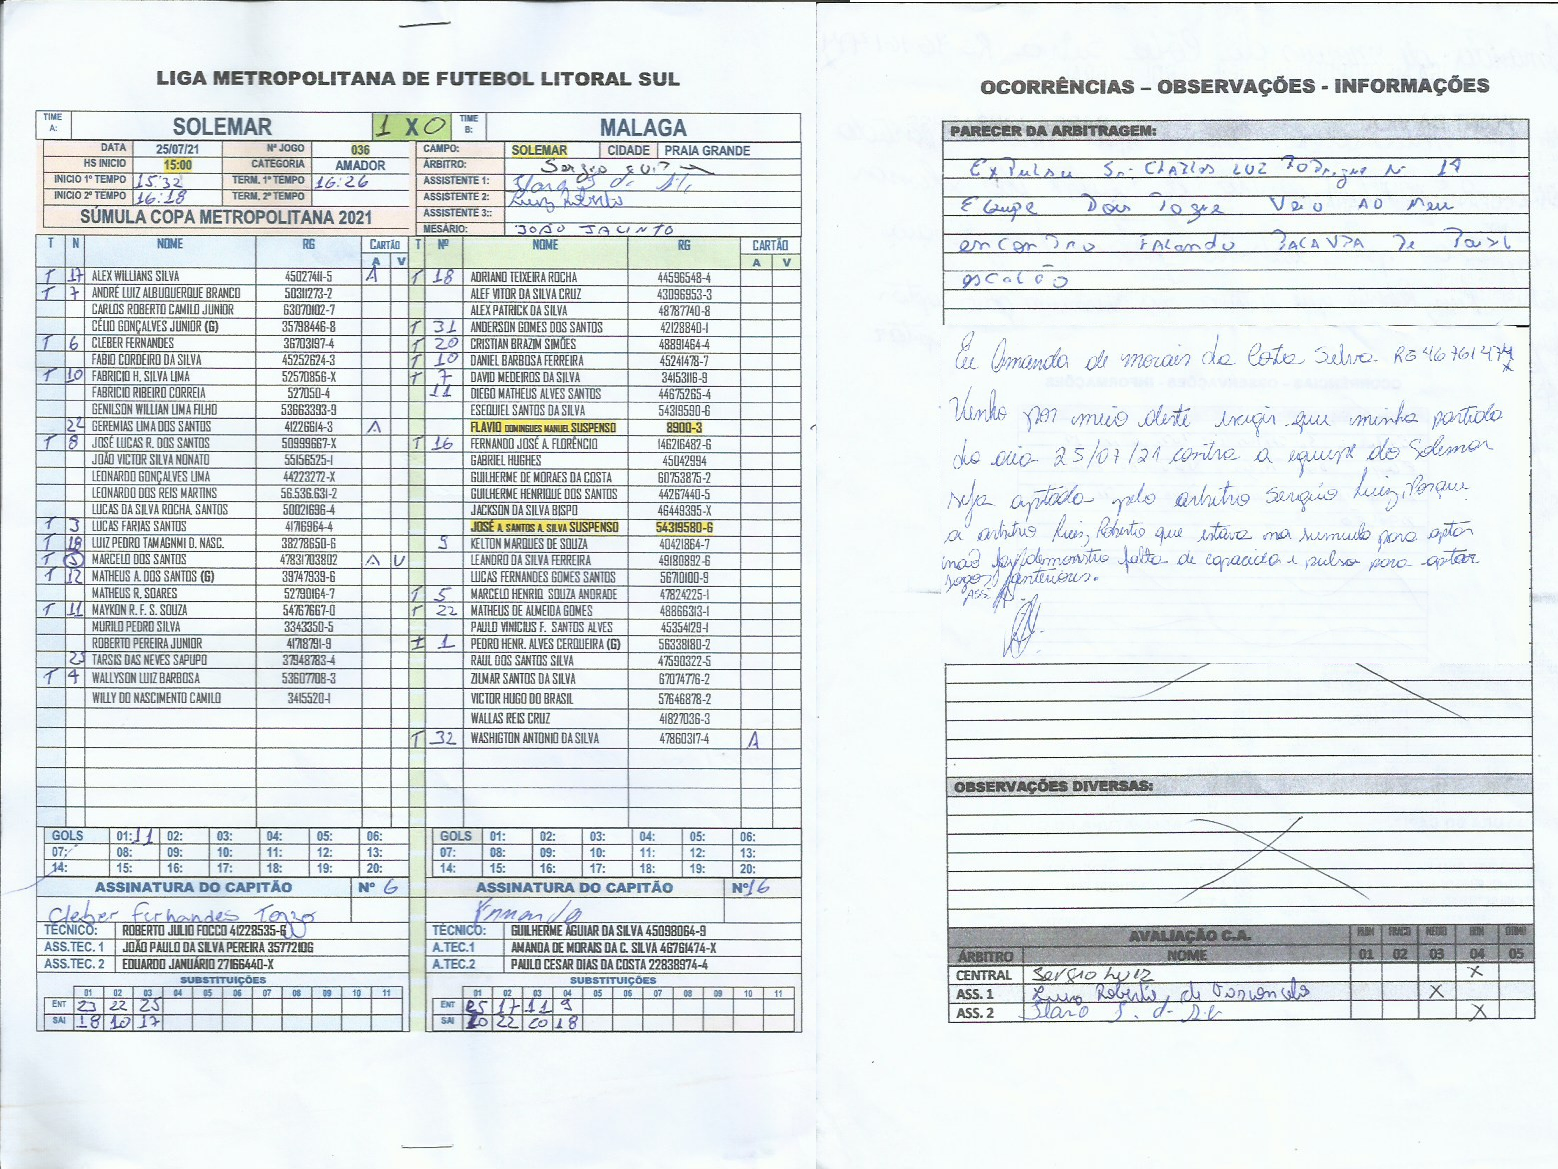 LIGA METROPOLITANA DE FUTEBOL LITORAL SUL
TIME A: SOLEMAR 1 X 0 TIME B: MALAGA
DATA 25/07/21 Nº JOGO 036 CAMPO: SOLEMAR CIDADE PRAIA GRANDE
HS INICIO 15:00 CATEGORIA AMADOR ÁRBITRO: Sergio
INICIO 1º TEMPO 15:32 TERM. 1º TEMPO 16:26 ASSISTENTE 1:
INICIO 2º TEMPO 16:18 TERM. 2º TEMPO ASSISTENTE 2: Luiz Roberto
SÚMULA COPA METROPOLITANA 2021 ASSISTENTE 3::
MESÁRIO: JOÃO JACINTO
T N NOME RG CARTÃO A V
T 17 ALEX WILLIANS SILVA 45027411-5 A
T 7 ANDRÉ LUIZ ALBUQUERQUE BRANCO 50311273-2
CARLOS ROBERTO CAMILO JUNIOR 63070102-7
CÉLIO GONÇALVES JUNIOR (G) 35798446-8
T 6 CLEBER FERNANDES 36703197-4
FABIO CORDEIRO DA SILVA 45252624-3
T 10 FABRICIO H. SILVA LIMA 52570856-X
FABRICIO RIBEIRO CORREIA 527050-4
GENILSON WILLIAN LIMA FILHO 53663393-9
22 GEREMIAS LIMA DOS SANTOS 41226614-3 A
T 8 JOSÉ LUCAS R. DOS SANTOS 50999667-X
JOÃO VICTOR SILVA NONATO 55156525-1
LEONARDO GONÇALVES LIMA 44223272-X
LEONARDO DOS REIS MARTINS 56.536.631-2
LUCAS DA SILVA ROCHA, SANTOS 50021696-4
T 3 LUCAS FARIAS SANTOS 41716964-4
T 18 LUIZ PEDRO TAMAGNMI D. NASC. 38278650-6
T 5 MARCELO DOS SANTOS 47831703802 A V
T 12 MATHEUS A. DOS SANTOS (G) 39747939-6
MATHEUS R. SOARES 52790164-7
T 11 MAYKON R. F. S. SOUZA 54767667-0
MURILO PEDRO SILVA 3343350-5
ROBERTO PEREIRA JUNIOR 41718791-9
23 TARSIS DAS NEVES SAPUPO 37948783-4
T 4 WALLYSON LUIZ BARBOSA 53607708-3
WILLY DO NASCIMENTO CAMILO 3415520-1
T Nº NOME RG CARTÃO A V
T 18 ADRIANO TEIXEIRA ROCHA 44596548-4
ALEF VITOR DA SILVA CRUZ 43096953-3
ALEX PATRICK DA SILVA 48787740-8
T 31 ANDERSON GOMES DOS SANTOS 42128840-1
T 20 CRISTIAN BRAZIM SIMÕES 48891464-4
T 10 DANIEL BARBOSA FERREIRA 45241478-7
T 7 DAVID MEDEIROS DA SILVA 34153116-9
11 DIEGO MATHEUS ALVES SANTOS 44675265-4
ESEQUIEL SANTOS DA SILVA 54319590-6
FLAVIO DOMINGUES MANUEL SUSPENSO 8900-3
T 16 FERNANDO JOSÉ A. FLORÊNCIO 146216482-6
GABRIEL HUGHES 45042994
GUILHERME DE MORAES DA COSTA 60753875-2
GUILHERME HENRIQUE DOS SANTOS 44267440-5
JACKSON DA SILVA BISPO 46449395-X
JOSÉ A. SANTOS A. SILVA SUSPENSO 54319580-6
9 KELTON MARQUES DE SOUZA 40421864-7
LEANDRO DA SILVA FERREIRA 49180892-6
LUCAS FERNANDES GOMES SANTOS 56710100-9
T 5 MARCELO HENRIQ SOUZA ANDRADE 47824225-1
T 22 MATHEUS DE ALMEIDA GOMES 48866313-1
PAULO VINICIUS F. SANTOS ALVES 45354129-1
T 1 PEDRO HENR. ALVES CERQUEIRA (G) 56338180-2
RAUL DOS SANTOS SILVA 47590322-5
ZILMAR SANTOS DA SILVA 67074776-2
VICTOR HUGO DO BRASIL 57646878-2
WALLAS REIS CRUZ 41827036-3
T 32 WASHIGTON ANTONIO DA SILVA 47860317-4 A
GOLS 01: 11 02: 03: 04: 05: 06:
07: 08: 09: 10: 11: 12: 13:
14: 15: 16: 17: 18: 19: 20:
ASSINATURA DO CAPITÃO Nº 6
Cleber Fernandes
TÉCNICO: ROBERTO JULIO FOCCO 41228535-6
ASS.TEC. 1 JOÃO PAULO DA SILVA PEREIRA 35772106
ASS.TEC. 2 EDUARDO JANUÁRIO 27166440-X
SUBSTITUIÇÕES
01 02 03 04 05 06 07 08 09 10 11
ENT 23 22 25
SAI 18 10 17
GOLS 01: 02: 03: 04: 05: 06:
07: 08: 09: 10: 11: 12: 13:
14: 15: 16: 17: 18: 19: 20:
ASSINATURA DO CAPITÃO Nº 16
Fernando
TÉCNICO: GUILHERME AGUIAR DA SILVA 45098064-9
A.TEC.1 AMANDA DE MORAIS DA C. SILVA 46761474-X
A.TEC.2 PAULO CESAR DIAS DA COSTA 22838974-4
SUBSTITUIÇÕES
01 02 03 04 05 06 07 08 09 10 11
ENT 25 17 11 9
SAI 10 22 20 18
OCORRÊNCIAS – OBSERVAÇÕES - INFORMAÇÕES
PARECER DA ARBITRAGEM:
Expulsu Sr: Charles Luz Nº 17
Equipe Veio AO Meu
encontro Falando PALAVRA De Baixl
escalão
Eu Amanda de morais da Costa Silva RG 46761474 X
Venho por meio deste exigir que minha partida
do dia 25/07/21 contra a equipe do Solemar
seja aptada pelo arbitro Sergio Luiz, Porque
o arbitrio Luis, Roberto que estava na sumula para aptar
não demonstra falta de capacida e pulso para aptar
jogos anteriores.
ASS:
OBSERVAÇÕES DIVERSAS:
AVALIAÇÃO C.A. RUIM FRACO MEDIO BOM OTIMO
ÁRBITRO NOME 01 02 03 04 05
CENTRAL Sergio Luiz X
ASS. 1 Luiz Roberto de Vasconcelo X
ASS. 2 X